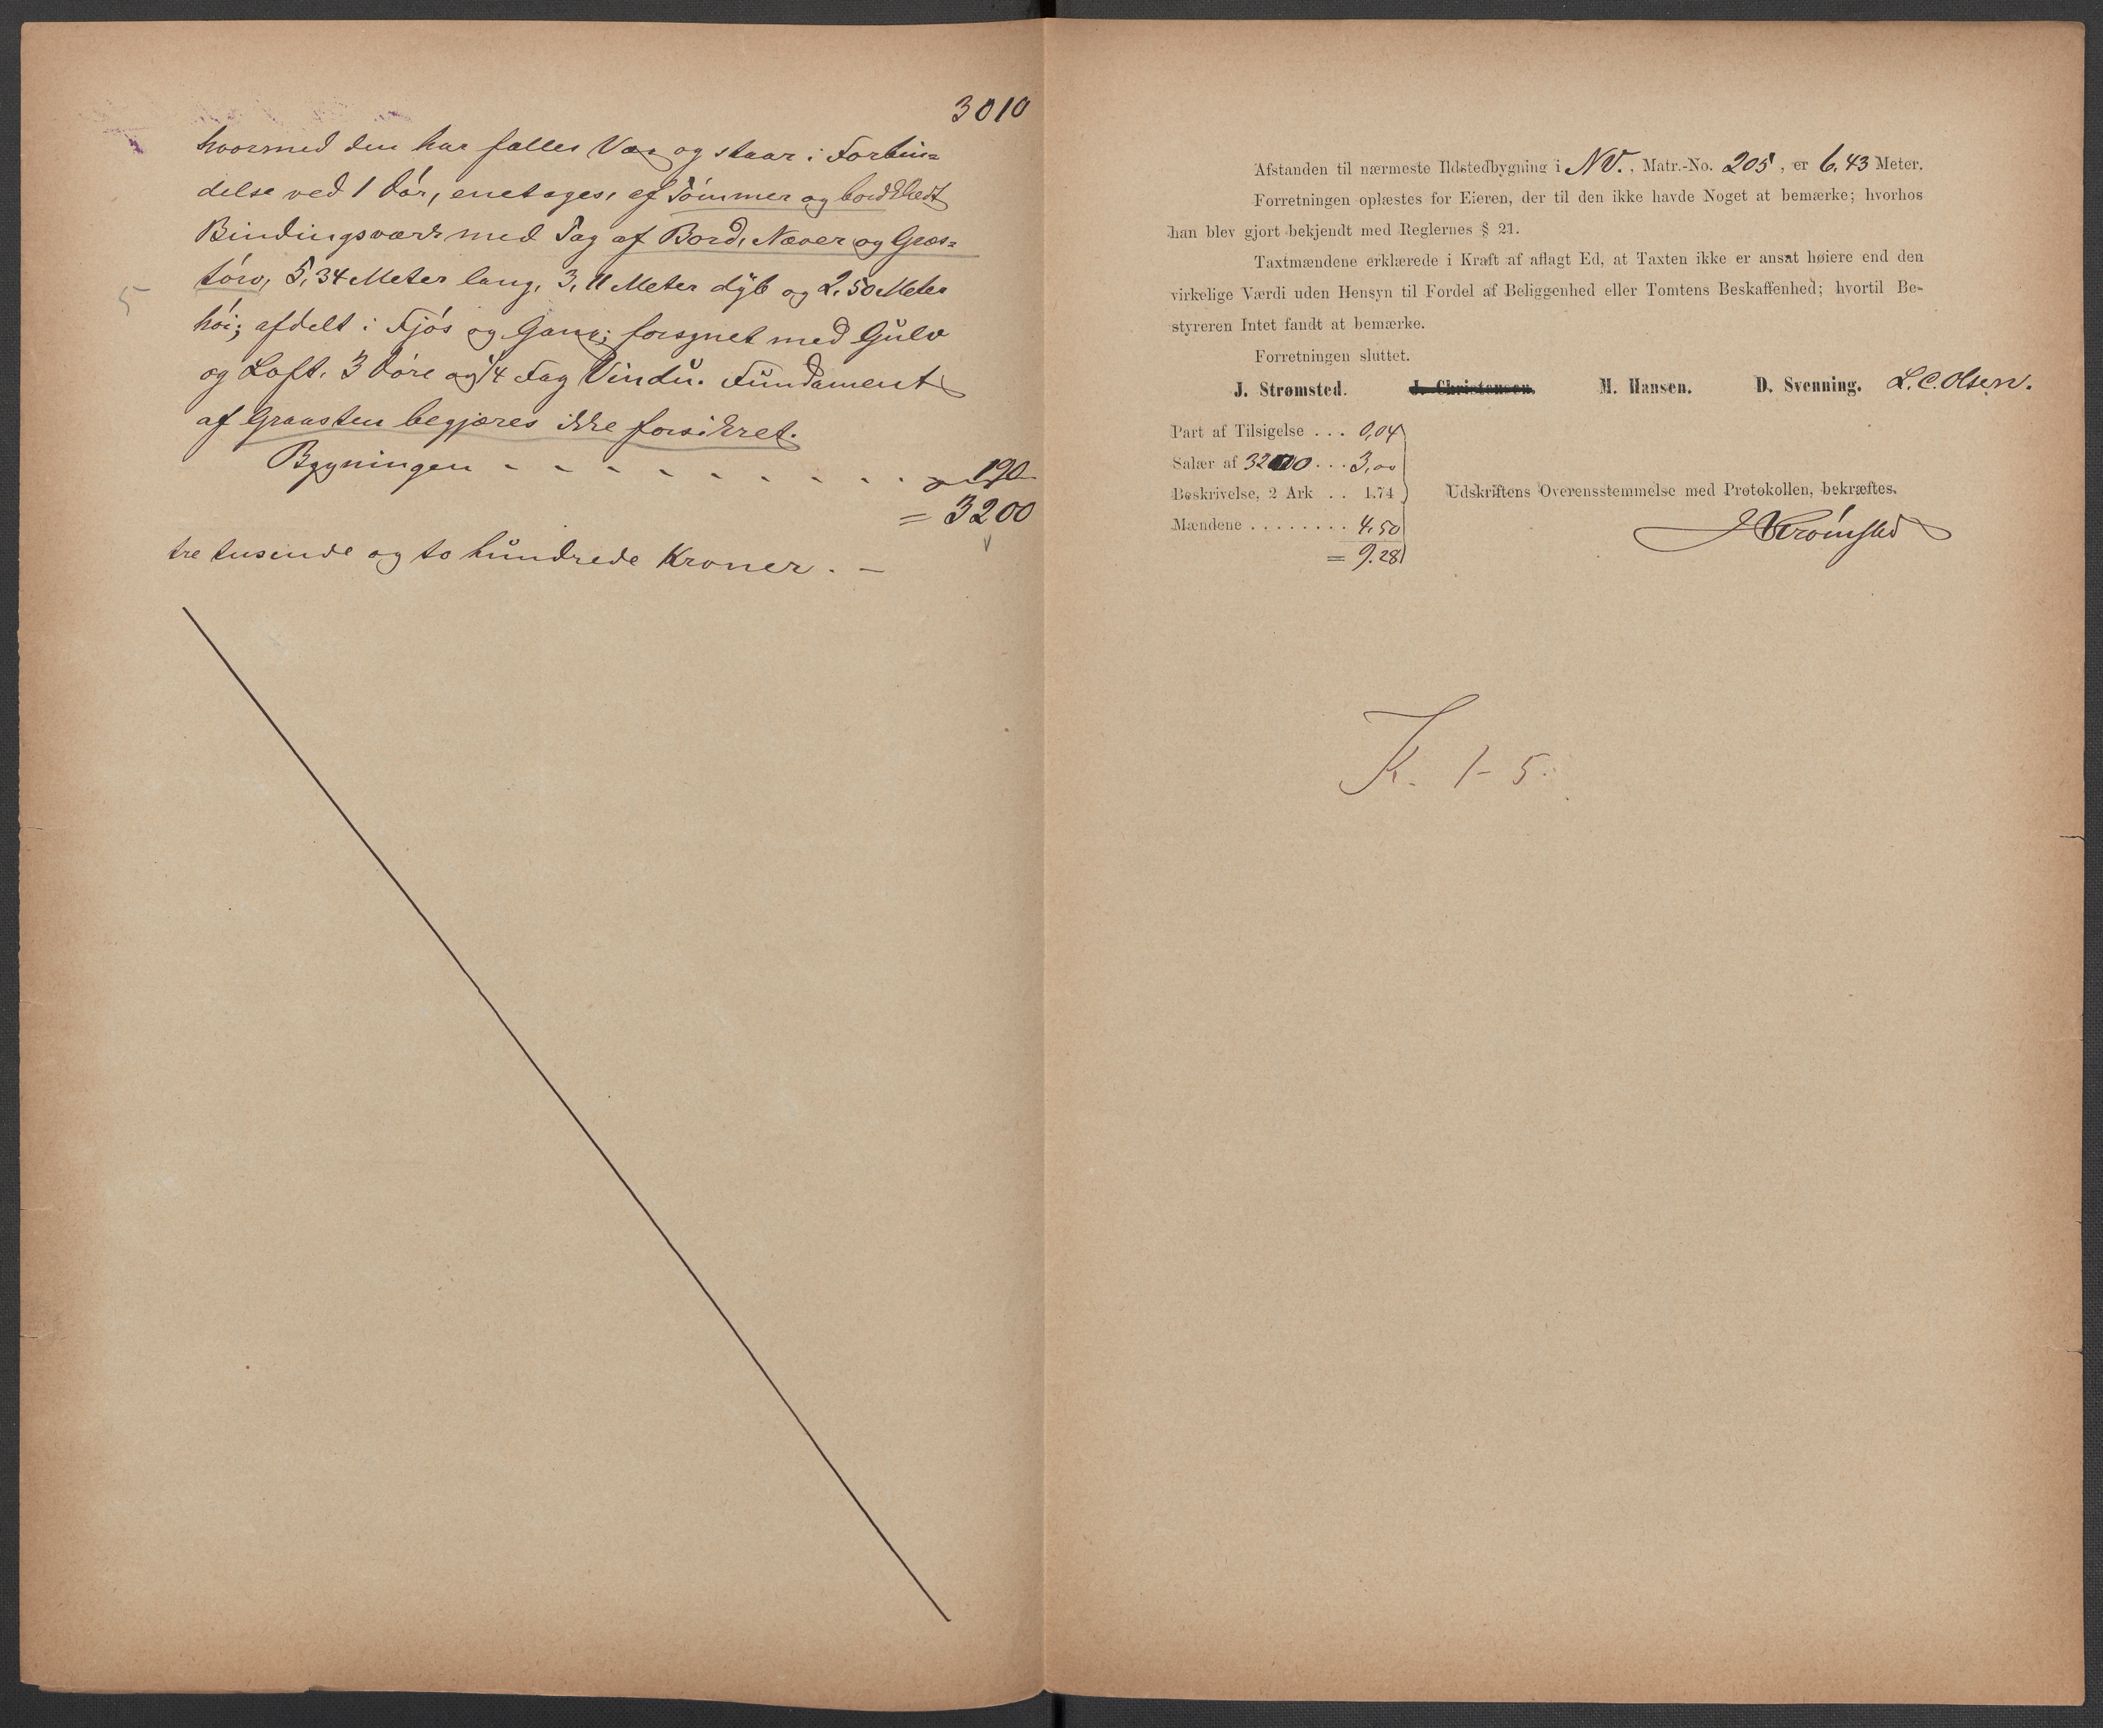 3010
hvormed den har fælles Væg og staar i Forbin=
delse ved 1 Dör, enetages, af Tömmer og bordklædt
Bindingsværk med Tag af Bord, Næver og Græs=
törv, 5,34 Meter lang, 3,11 Meter dyb og 2,50 Meter
5
höi; afdelt i Fjös og Gang; forsynet med Gulv
og Loft. 3 Döre og 1/4 Fag Vindu. Fundament
af Graasten begjæres ikke forsikret.
Bygningen - - - - - - - - - - 190
= 3200
tre tusende og to hundrede Kroner. —
Afstanden til nærmeste Ildstedbygning i NV., Matr.-No. 205, er 6,43 Meter.
Forretningen oplæstes for Eieren, der til den ikke havde Noget at bemærke; hvorhos
han blev gjort bekjendt med Reglernes § 21.
Taxtmændene erklærede i Kraft af aflagt Ed, at Taxten ikke er ansat høiere end den
virkelige Værdi uden Hensyn til Fordel af Beliggenhed eller Tomtens Beskaffenhed; hvortil Be-
styreren Intet fandt at bemærke.
Forretningen sluttet.
J. Strømsted. J. Christensen. M. Hansen. D. Svenning. L. C. Olsen.
Part af Tilsigelse . . . 0,04
Salær af 3200 . . . 3,00
Beskrivelse, 2 Ark . . 1.74
Udskriftens Overensstemmelse med Protokollen, bekræftes.
Mændene . . . . . . . . 4.50
JStrömsted
= 9.28
K. 1-5.